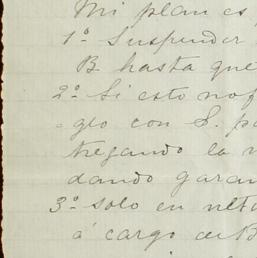 Mi plan es
1º Suspender
B hasta que
2º Si esto no f
glo con S. p
tregando la
dando garan
3º solo en ulti
á cargo de B